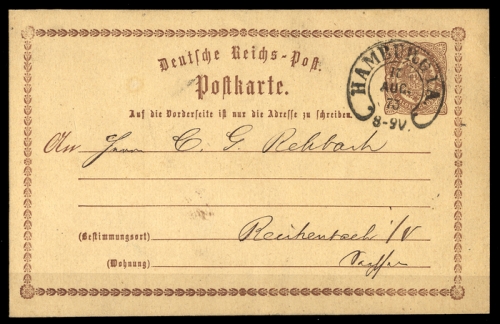 Deutsche Reichs-Post.
Postkarte.
HAMBURG I.A.
AUG.
73
8-9V.
Auf die Vorderseite ist nur die Adresse zu schreiben.
An Herrn C. G. Rehbach
(Bestimmungsort)
i/V
(Wohnung)
Sachsen